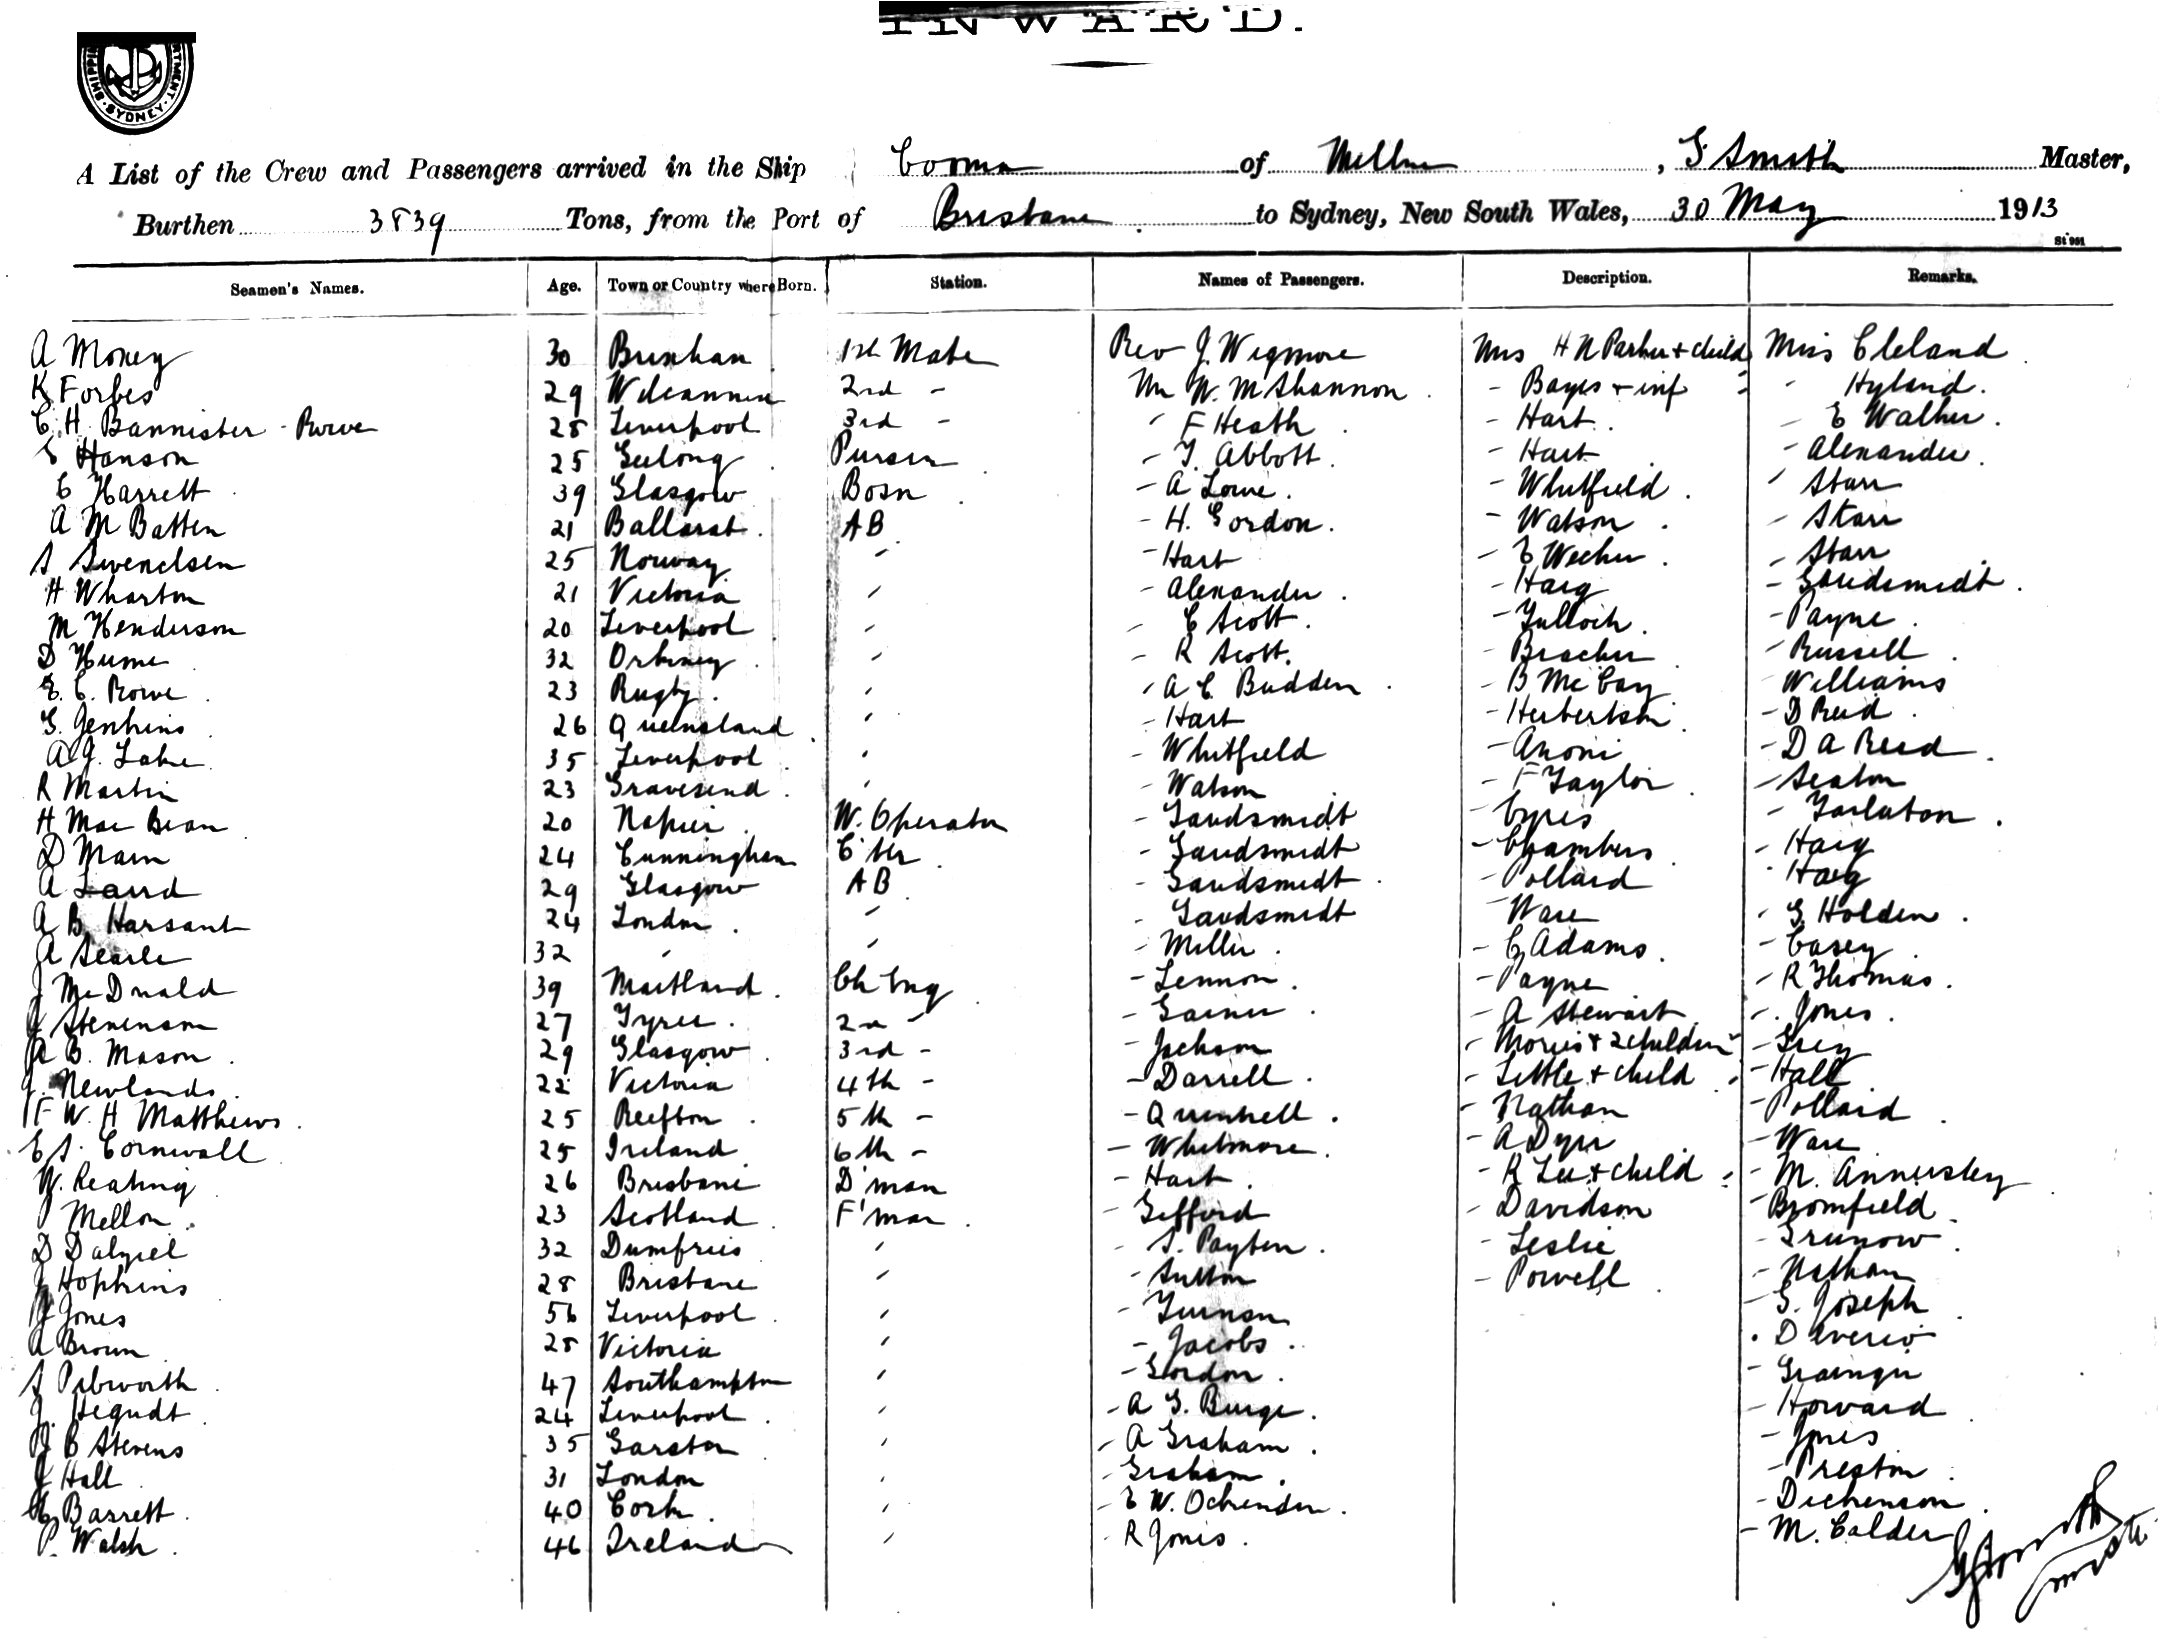 INWARD.
SHIPPING
SYDNEY
A List of the Crew and Passengers arrived in the Ship Cooma of Melbn, G. Smith Master,
Burthen 3839 Tons, from the Port of Brisbane to Sydney, New South Wales, 30 May 1913
St 991
Seamen's Names. Age. Town or Country where Born. Station. Names of Passengers. Description. Remarks.
A Money 30 1st Mate Rev J. Wigmore Mrs H N Parker + child Miss Cleland
K Forbes 29 Wilcannia 2nd - Mr W. M Shannon - Bayes + inf - Hyland.
C. H. Bannister - Rowe 28 Liverpool 3rd - " F Heath - Hart. - E Walker.
E Hanson 25 Geelong Purser - T. Abbott. - Hart - Alexander.
C Harrett 39 Glasgow Bosn - A Lowe. - Whitfield. " Starr
A M Batten 21 Ballarat. AB - H. Gordon. - Watson. - Starr
S Swendsen 25 Norway " - Hart - E - Starr
H Wharton 21 Victoria " - Alexander. - Haig - Goudsmidt.
M Henderson 20 Liverpool " - C Scott. - Tulloch. - Payne.
D Hume 32 Orkney " - R Scott. - Bracker - Russell.
E. C. Rowe 23 Rugby. " " A C. Budden. - B McCay - Williams
G. Jenkins 26 Queensland " - Hart - Herbertson - D Reid.
A. J. Lake 35 Liverpool " - Whitfield - Anoni - D A Reed.
R Martin 23 Gravesend. " - Watson - F Taylor - Seaton
H MacBean 20 Napier. W. Operator - Goudsmidt - Cyres - Tarlaton.
D Mann 24 Cunningham C'ter - Goudsmidt - Chambers - Haig
A Laird 29 Glasgow AB - Goudsmidt. - Pollard " Haig
A B. Harsant 24 London. " - Goudsmidt - Ware " G. Holden.
A Searle 32 " " - Miller. - C Adams. - Casey
J McDonald 39 Maitland. Ch Eng - Lennon. - Payne - R Thomas.
J Stevenson 27 Tyree. 2nd - - Gainer - A Stewart - Jones.
A B. Mason. 29 Glasgow 3rd - - Jackson - Morris + 2 children - Grey
J. Newlands. 22 Victoria 4th - - Darrell. - Little + child - Hall
F W. H Matthews. 25 Reefton 5th - - Quinnell. - Nathan - Pollard
E S. Cornwall 25 Ireland 6th - - Whitmore. - A Dyer - Ware
W. Keating 26 Brisbane D'man - Hart. - R Lee + child - M. Annersley
P Mellon. 23 Scotland F'man. - Gifford - Davidson - Bromfield
D Dalziel 32 Dumfries " - S. Payten. - Leslie - Grunow.
J Hopkins 28 Brisbane " - Sutton - Powell - Nathan
J Jones 56 Liverpool " - Turnon - G. Joseph
A Brown 28 Victoria " - Jacobs. . Daverio
S Pibworth 47 Southampton " - Gordon. - Grainger
J. Hegndt 24 Liverpool " - A G. Burge. - Howard
J B Stevens 35 Garston " - A Graham. - Jones
J Hall 31 London " - Graham. - Preston
C Barrett 40 Cork. " - E W. Ochenden. - Dickenson.
P. Walsh. 46 Ireland " R Jones. - M. Calder
G Smith
Master